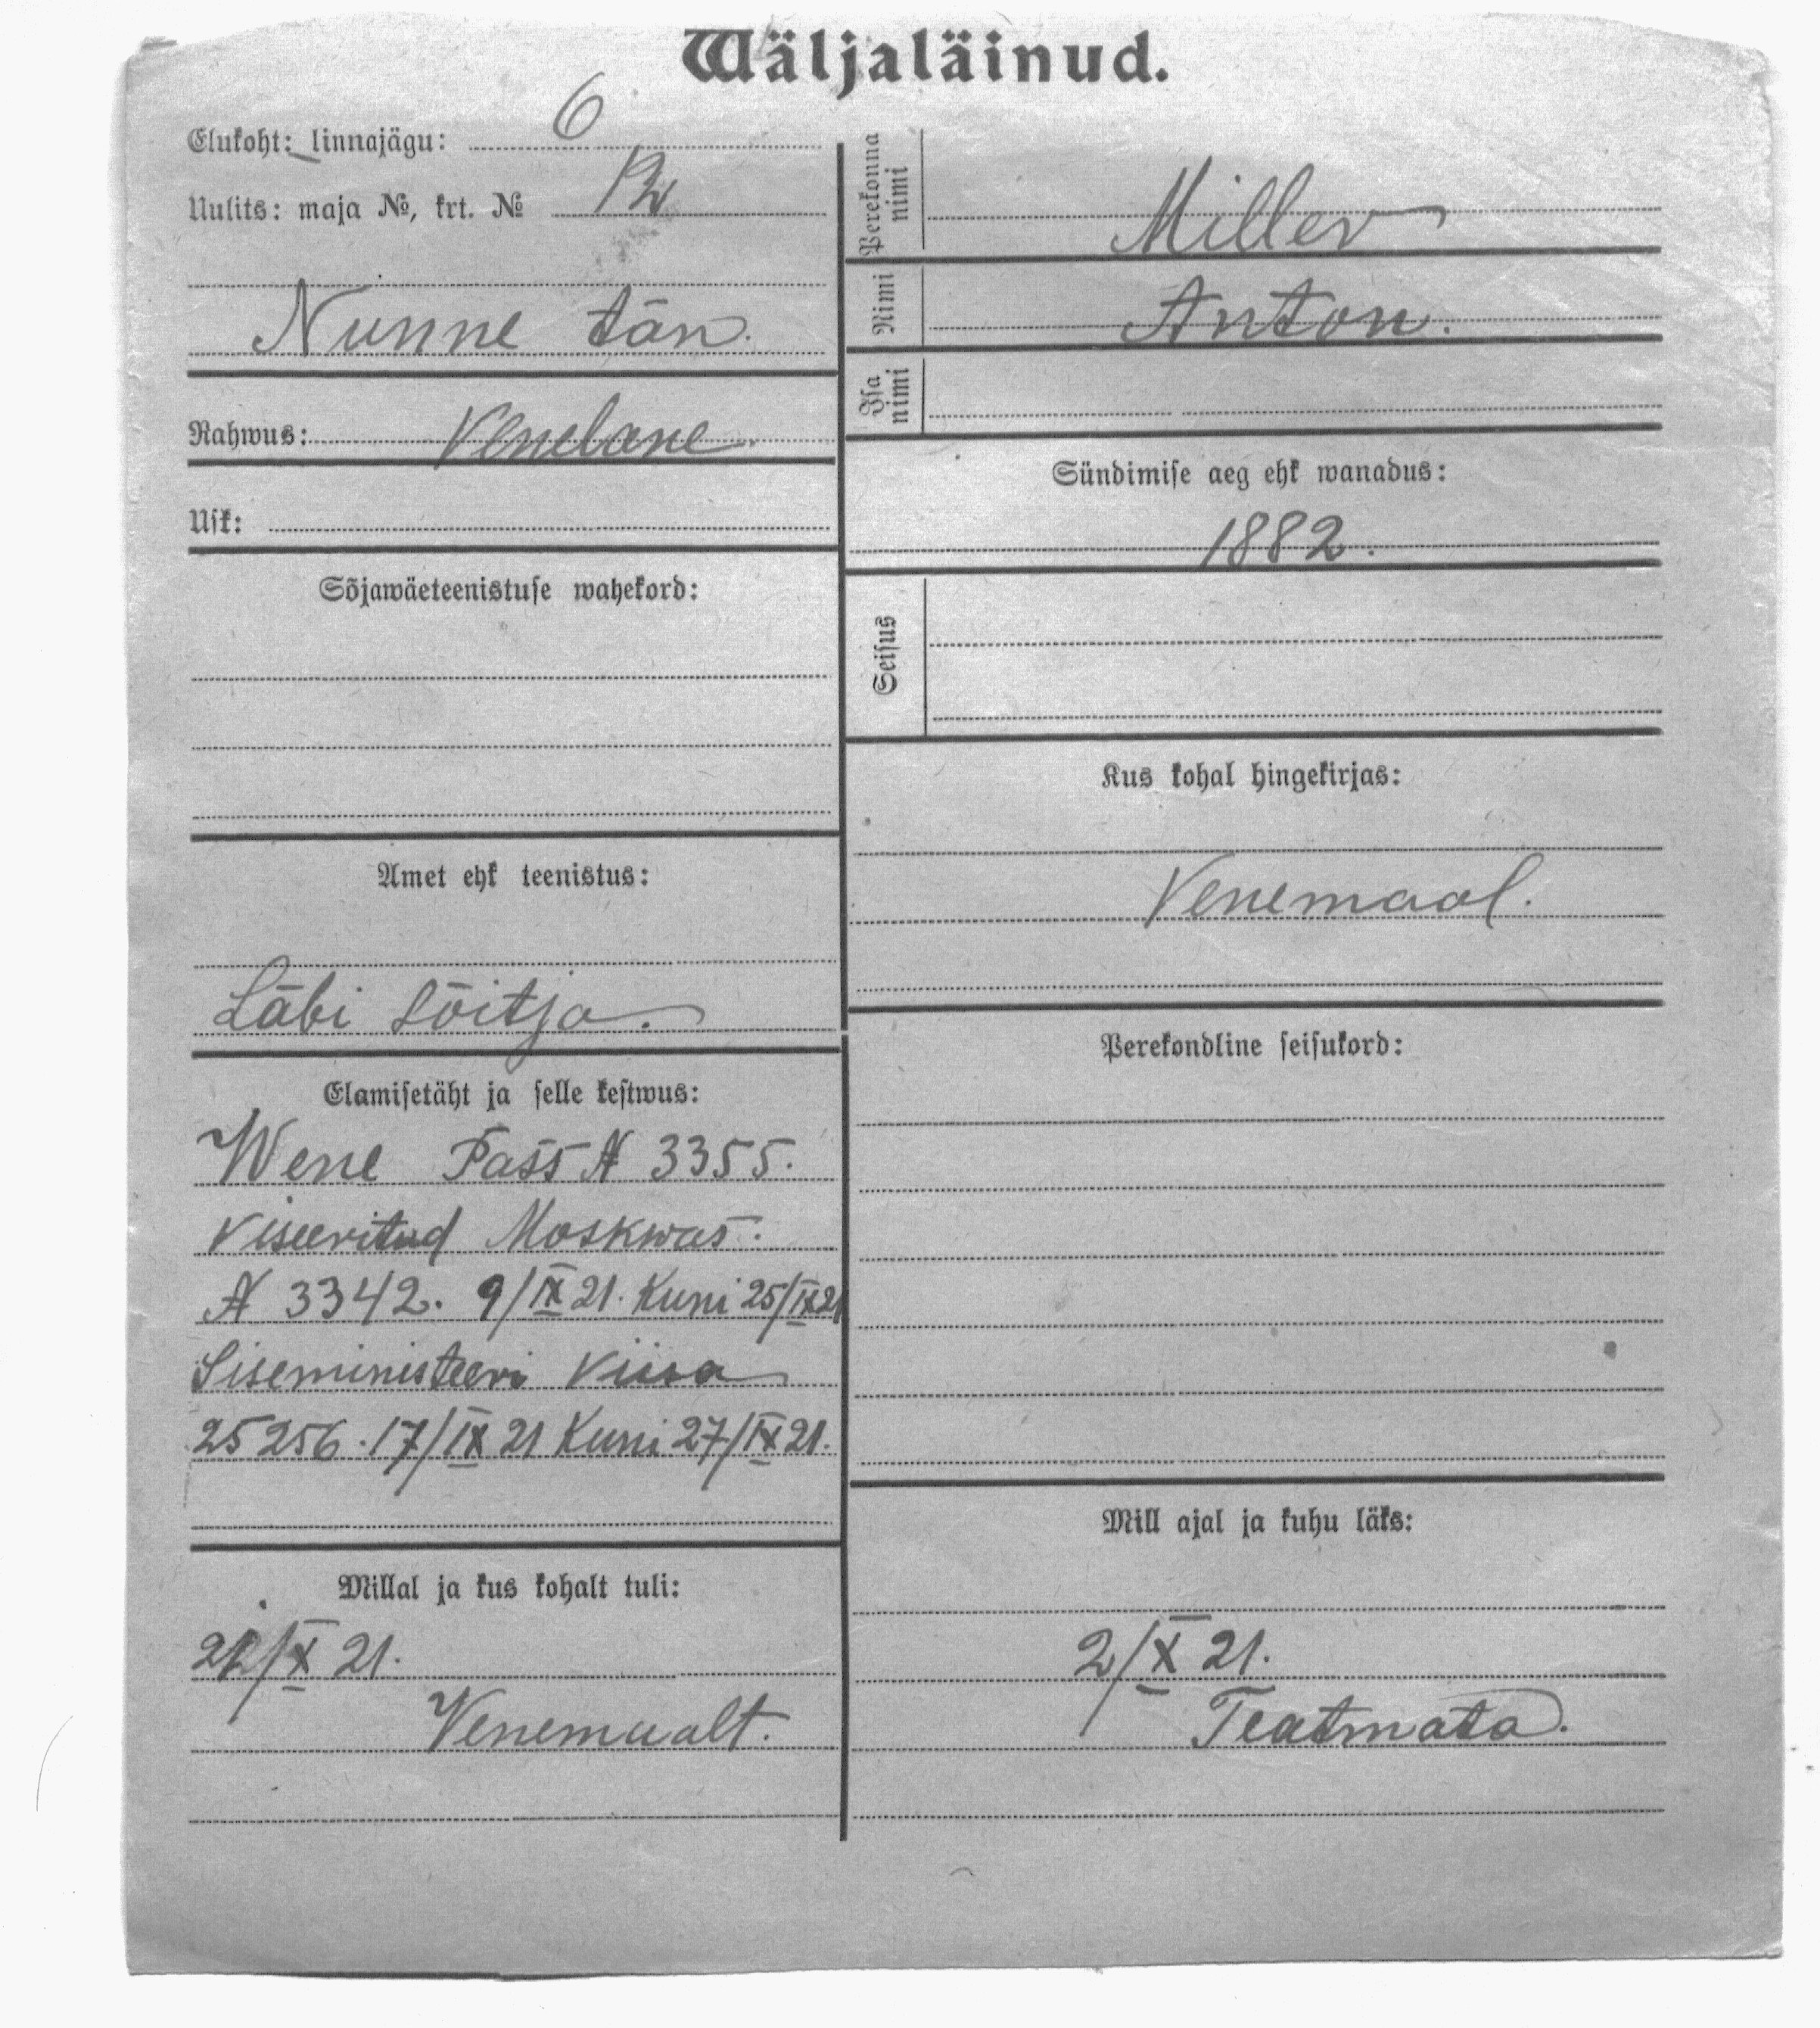 Wäljaläinud.
Elukoht: linnajägu: 6
Uulits: maja №, krt. № 12
Nunne tän.
Rahwus: Venelane.
Usk:
Sõjawäeteenistuse wahekord:
Amet ehk teenistus:
Läbi sõitja.
Elamisetäht ja selle kestwus:
Wene Pass № 3355.
Viseeritud Moskwas.
№ 3342. 9/IX 21. Kuni 25/IX 21
Siseministeeri Viisa
25256. 17/IX 21 Kuni 27/IX 21.
Millal ja kus kohalt tuli:
/X 21.
Venemaalt.
Perekonna nimi
Miller
Nimi
Anton.
Isa nimi
Sündimise aeg ehk wanadus:
1882.
Seisus
Kus kohal hingekirjas:
Venemaal.
Perekondline seisukord:
Mill ajal ja kuhu läks:
2/X 21.
Teatmata.